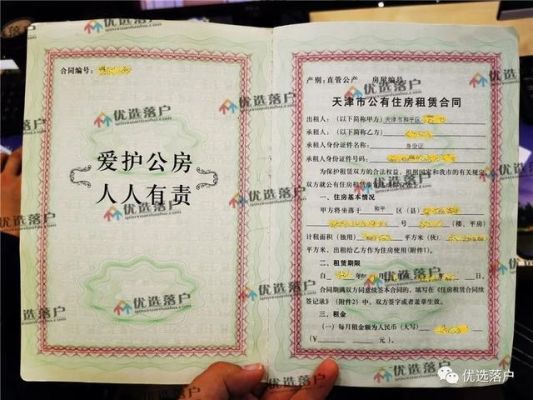 合同编号：
爱护公房
人人有责
产别：直管公产 房屋编号
天津市公有住房租赁合同
出租人：（以下简称甲方）天津市和平区
承租人：（以下简称乙方）
承租人身份证件名称： 身份证
承租人身份证件号码：
为保护租赁双方的合法权益，根据国家和我市的有关规定
双方就公有住房租赁
一、住房基本情况
甲方将坐落于 和平 区（县）
号 （楼，平房）
计租面积（独用） 平方米（伙）
平方米，出租给乙方作为住房使用（附件1）。
二、租赁期限
自 年
合同期满双方同意续签本合同的，填写在《住房租赁合同续
签记录》（附件2）中，双方签字或者盖章生效。
三、租金
（一）每月租金额为人民币（大写）
（￥ 元）。
优选落户
优选落户